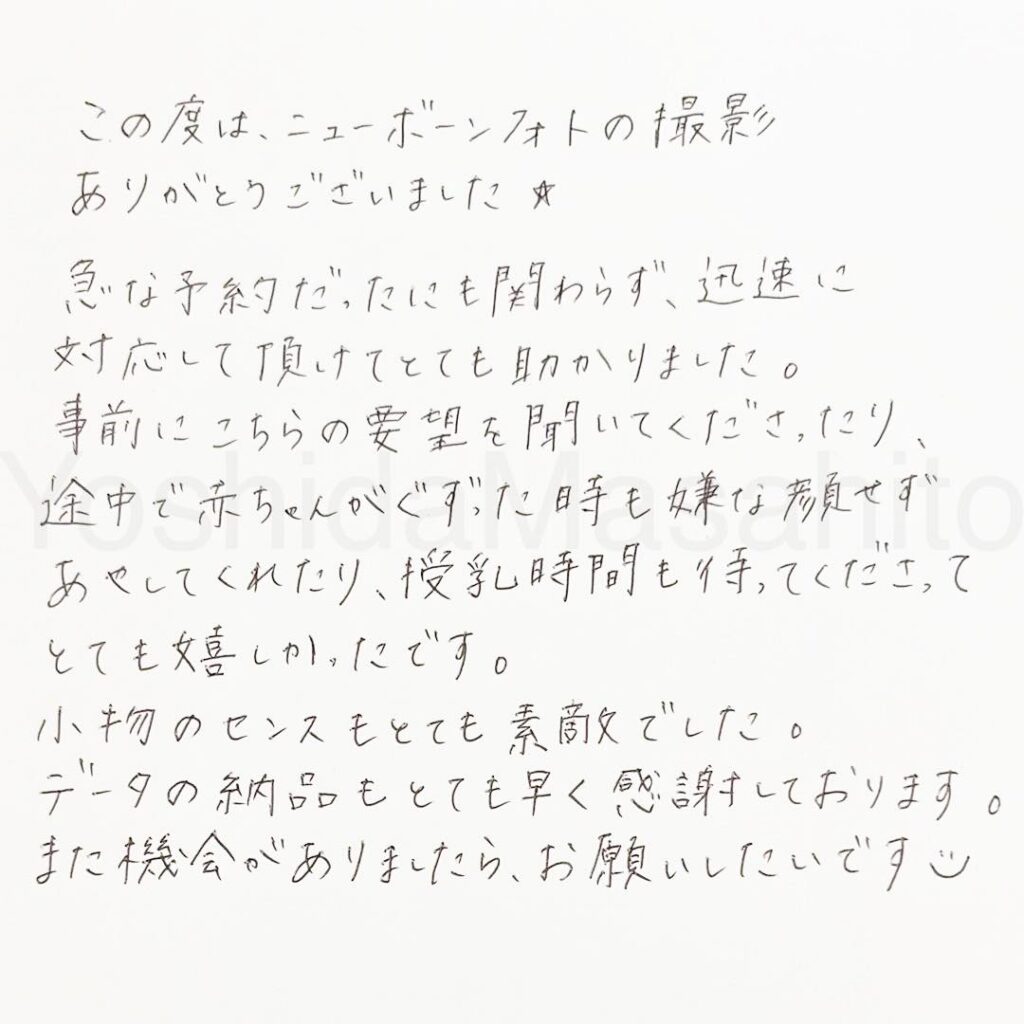 この度は、ニューボーンフォトの撮影
ありがとうございました☆
急な予約だったにも関わらず、迅速に
対応して頂けてとても助かりました。
事前にこちらの要望を聞いてくださったり、
途中で赤ちゃんがぐずった時も嫌な顔せず
あやしてくれたり、授乳時間も待ってくださって
とても嬉しかったです。
小物のセンスもとても素敵でした。
データの納品もとても早く感謝しております。
また機会がありましたら、お願いしたいです
YoshidaMasahito